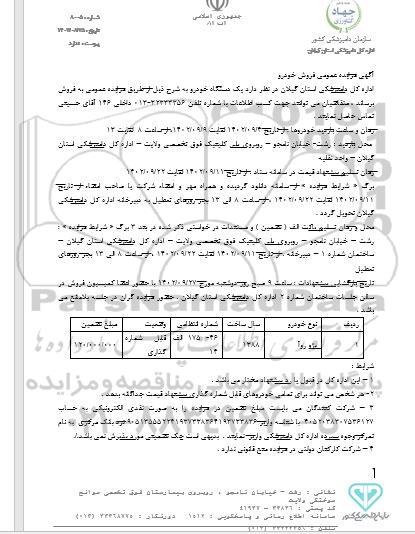 جمهوری اسلامی
شماره: ۸۰۰۵
پیوست: ندارد
جهاد
کشاورزی
سازمان دامپزشکی کشور
اداره کل دامپزشکی استان گیلان
آگهی مزایده عمومی فروش خودرو
اداره کل دامپزشکی استان گیلان در نظر دارد یک دستگاه خودرو به شرح ذیل از طریق مزایده عمومی به فروش
برساند . متقاضیان می توانند جهت کسب اطلاعات با شماره تلفن ۳۳۴۳۳۳۵۶-۰۱۳ داخلی ۱۴۶ آقای حسینی
تماس حاصل نمایند .
زمان و ساعت بازدید خودروها : از تاریخ ۱۴۰۲/۰۹/۴ لغایت ۱۴۰۲/۰۹/۹ از ساعت ۸ لغایت ۱۳
محل بازدید : رشت- خیابان نامجو – روبروی پلی کلینیک فوق تخصصی ولایت – اداره کل دامپزشکی استان
گیلان – واحد نقلیه
زمان تسلیم پیشنهاد قیمت در سامانه ستاد : از تاریخ ۱۴۰۲/۰۹/۱۱ لغایت ۱۴۰۲/۰۹/۲۲
برگ « شرایط مزایده » از سامانه دانلود گردیده و همراه مهر و امضاء شرکت یا صاحب امضاء از تاریخ
۱۴۰۲/۰۹/۱۱ لغایت ۱۴۰۲/۰۹/۲۲ از ساعت ۸ الی ۱۳ بجز روزهای تعطیل به دبیرخانه اداره کل دامپزشکی
گیلان تحویل گردد .
محل و زمان تسلیم پاکت الف ( تضمین ) و مستندات در خواستی ذکر شده در بند ۳ برگ « شرایط مزایده » :
رشت – خیابان نامجو – روبروی پلی کلینیک فوق تخصصی ولایت – اداره کل دامپزشکی استان گیلان –
ساختمان شماره ۱ – دبیرخانه . از تاریخ ۱۴۰۲/۰۹/۱۱ لغایت ۱۴۰۲/۰۹/۲۲ از ساعت ۸ الی ۱۳ بجز روزهای
تعطیل
تاریخ بازگشایی پیشنهادات : ساعت ۹ صبح روز دوشنبه مورخ ۱۴۰۲/۰۹/۲۷ با حضور اعضا کمیسیون فروش در
سالن جلسات ساختمان شماره ۲ اداره کل دامپزشکی استان گیلان . حضور مزایده گران در جلسه بلامانع می
باشد .
ردیف نوع خودرو سال ساخت شماره انتظامی وضعیت مبلغ تضمین
۱ پژو روآ ۱۳۸۸ ۴۶- ۱۷۵ الف ۱۴ قفل شماره گذاری ۱۲۰/۰۰۰/۰۰۰
شرایط :
۱ – این اداره کل در قبول یا رد پیشنهاد مختار می باشد .
۲- هر شخص می تواند برای تمامی خودروهای قفل شماره گذاری پیشنهاد قیمت جداگانه بدهد .
۳ – شرکت کنندگان می بایست مبلغ تضمین در مزایده را به صورت نقدی الکترونیکی به حساب
با شناسه واریز نزد بانک مرکزی به نام
تمرکز وجوه سپرده اداره کل دامپزشکی واریز نمایند . بدیهی است چک تضمینی مورد پذیرش نمی باشد.
۴ – شرکت کارکنان دولتی در مزایده منع قانونی ندارد .
1
نشانی : رشت – خیابان نامجو ، روبروی بیمارستان فوق تخصصی سوانح
سوختگی ولایت
کد پستی : ۳۳۸۳۶ – ۴۱۹۳۷
سامانه اطلاع رسانی و پاسخگویی : ۱۵۱۲ دورنگار : ۳۳۳۶۸۷۷۵ (۰۱۳)